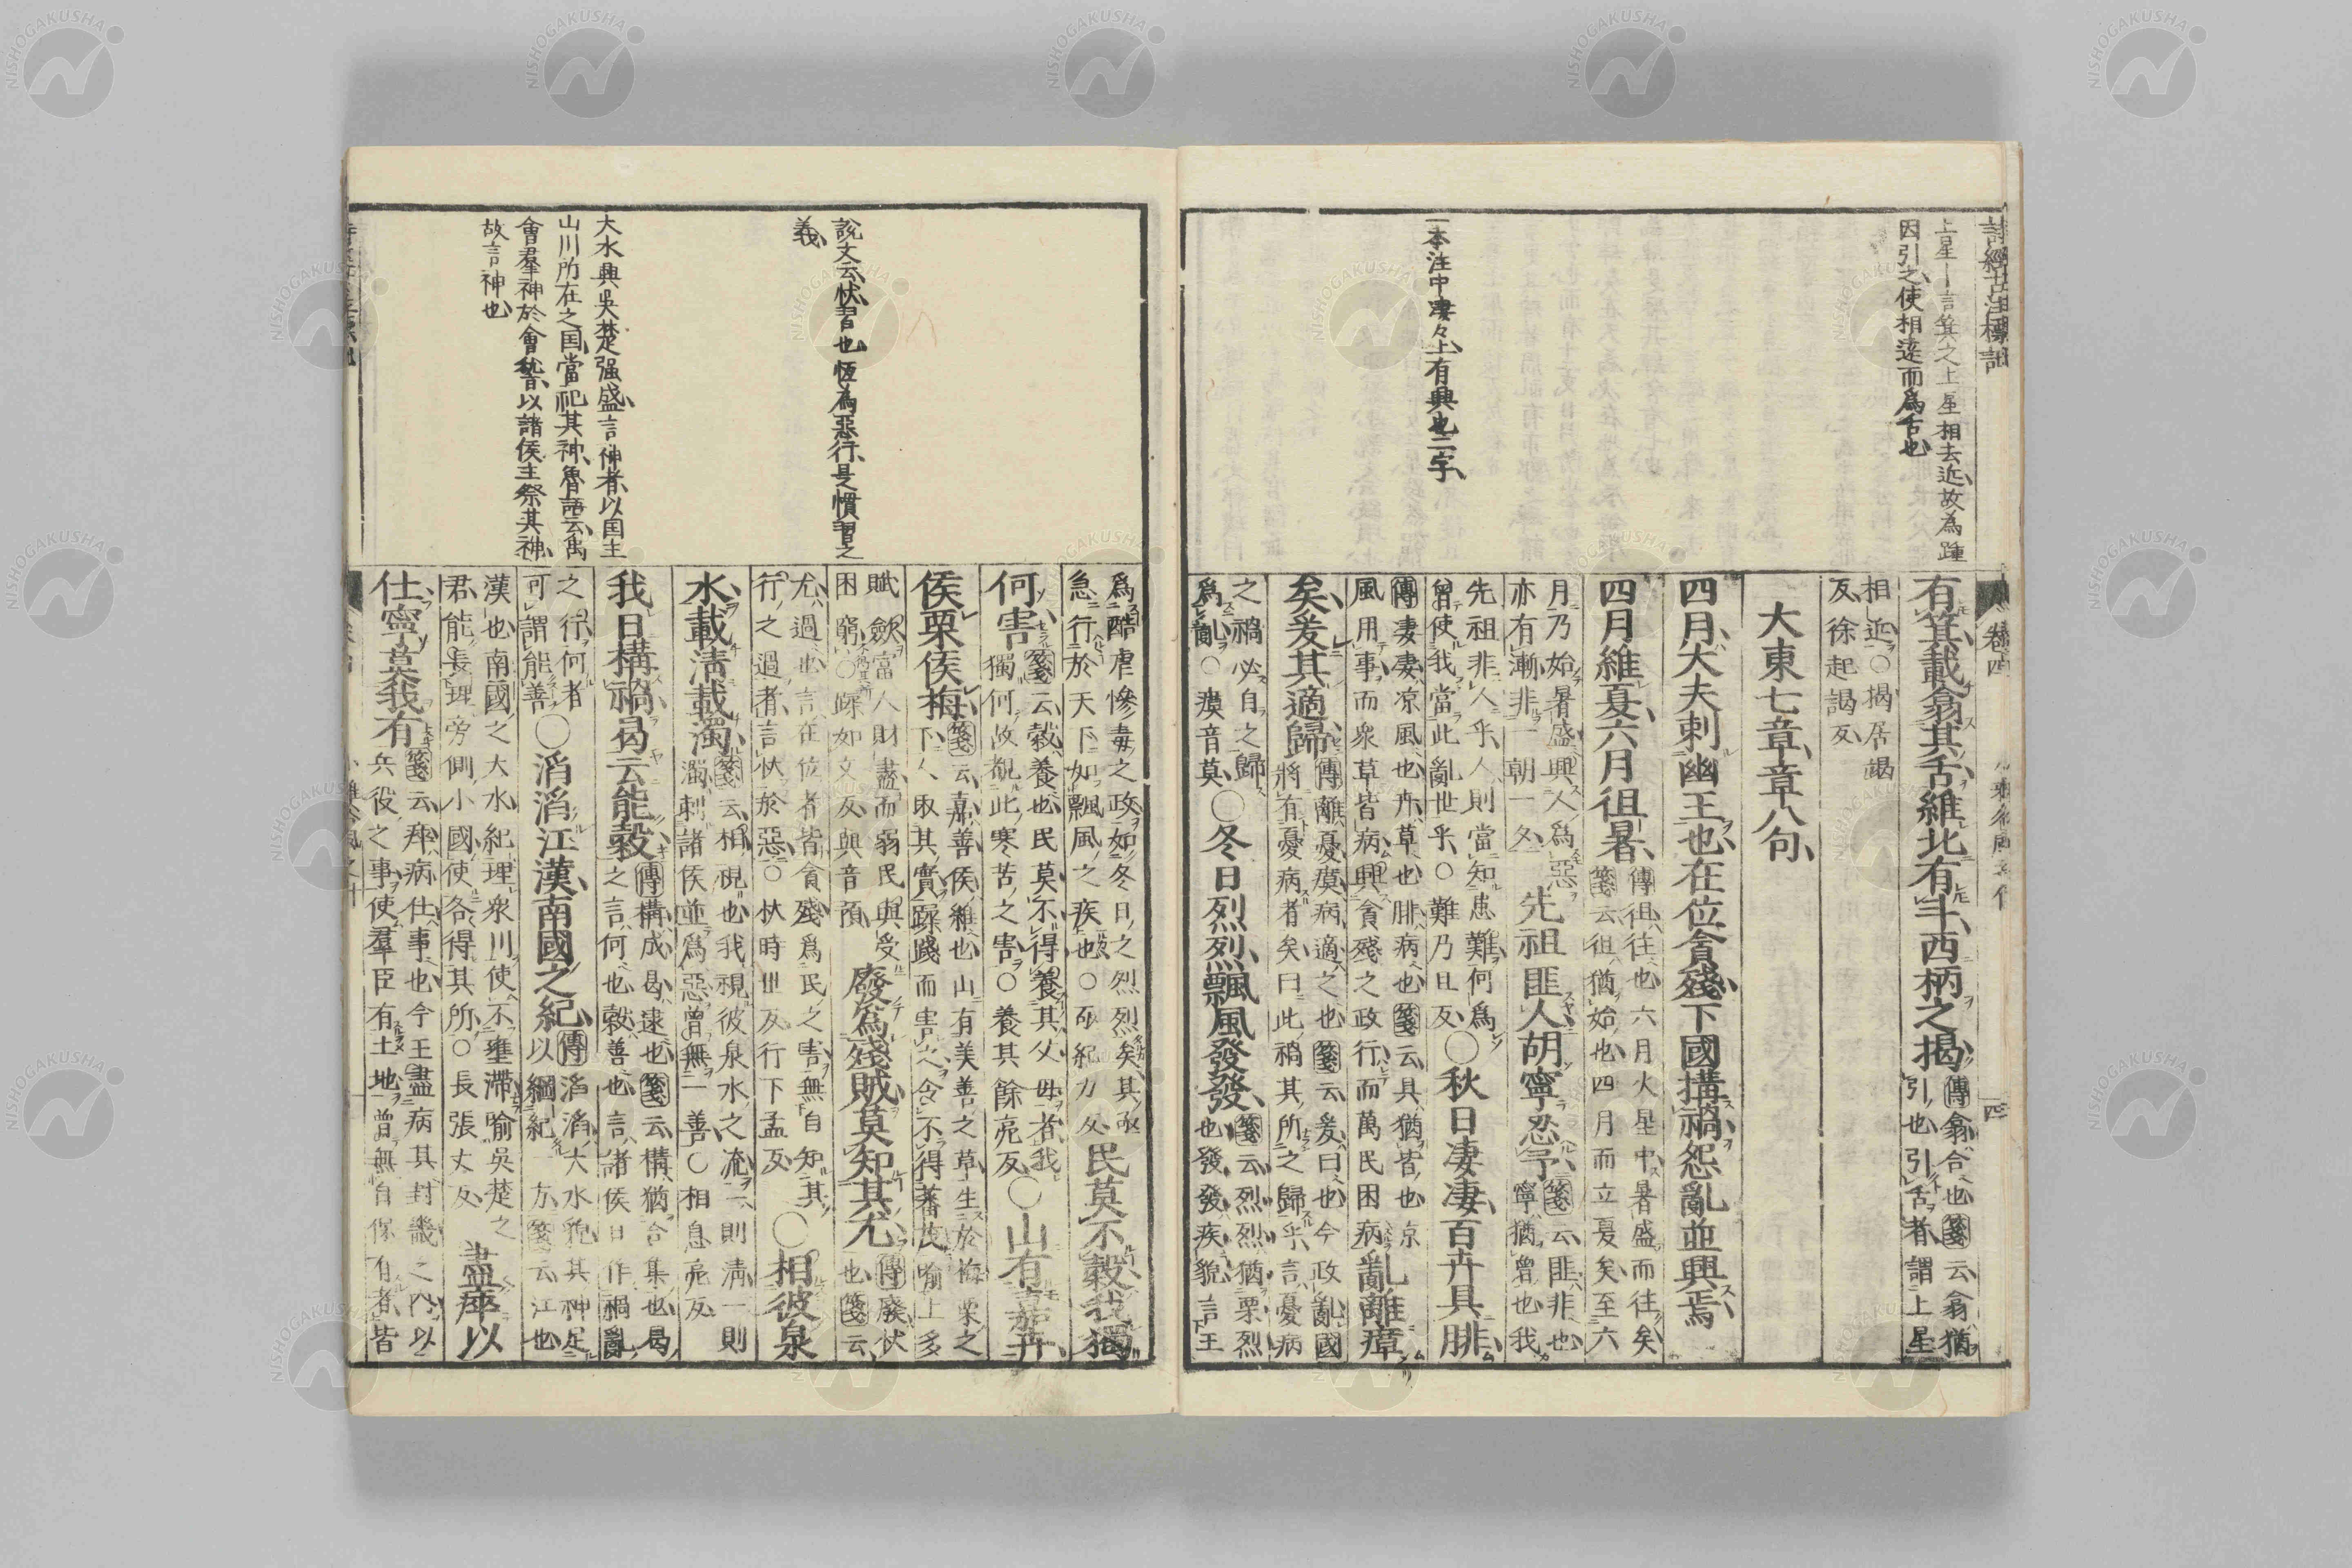 詩經古注標記
上星｜言箕之上星相去近故為踵
因引之使相遠而爲舌也
一本注中凄々上有興也二字
卷四
四
有箕載翕其舌維北有斗西柄之揭
傳翕合也箋云翕猶
引也引舌者謂上星
相近○揭居竭
反徐起謁反
大東七章章八句
四月大夫刺幽王也在位貪殘下國構禍怨亂並興焉
四月維夏六月徂暑
傳徂往也六月火星中暑盛而往矣
箋云徂猶始也四月而立夏矣至六
月乃始暑盛興人爲惡
亦有漸非一朝一夕
先祖匪人胡寧忍予
箋云匪非也
寧猶曾也我
先祖非人乎人則當知患難何爲
曾使我當此亂世乎○難乃旦反
○秋日凄凄百卉具腓
傳凄凄凉風也卉草也腓病也箋云具猶皆也凉
風用事而衆草皆病興貪殘之政行而萬民困病
亂離瘼
矣爰其適歸
傳離憂瘼病適之也箋云爰曰也今政亂國
將有憂病者矣曰此禍其所之歸乎言憂病
之禍必自之歸
爲亂○瘼音莫
○冬日烈烈飄風發發
箋云烈烈猶栗烈
也發發疾貌言王
說文云忕習也恆為惡行是慣習之
義
大水興吳楚强盛言神者以国主
山川所在之国當祀其神魯語云禹
會羣神於會稽以諸侯主祭其神
故言神也
爲酷虐慘毒之政如冬日之烈烈矣其亟
急行於天下如飄風之疾也○亟紀力反
民莫不穀我獨
何害
箋云穀養也民莫不得養其父母者我
獨何故覩此寒苦之害○養其餘亮反
○山有嘉卉
侯栗侯梅
箋云嘉善侯維也山有美善之草生於梅栗之
下人取其實蹂踐而害之令不得蕃茂喻上多
賦斂富人財盡而弱民與受
困窮○蹂如文反與音預
廢爲殘賊莫知其尤
傳廢忕
也箋云
尤過也言在位者皆貪殘爲民之害無自知其
行之過者言忕於惡○忕時世反行下孟反
○相彼泉
水載淸載濁
箋云相視也我視彼泉水之流一則淸一則
濁刺諸侯並爲惡曾無一善○相息亮反
我日構禍曷云能穀
傳構成曷逮也箋云構猶合集也曷
之言何也穀善也言諸侯日作禍亂
之行何者
可謂能善
○滔滔江漢南國之紀
傳滔滔大水貌其神足
以綱紀一方箋云江也
漢也南國之大水紀理衆川使不壅滯喻吳楚之
君能長理旁側小國使各得其所○長張丈反
盡瘁以
仕寧莫我有
箋云瘁病仕事也今王盡病其封畿之內以
兵役之事使羣臣有土地曾無自保有者皆